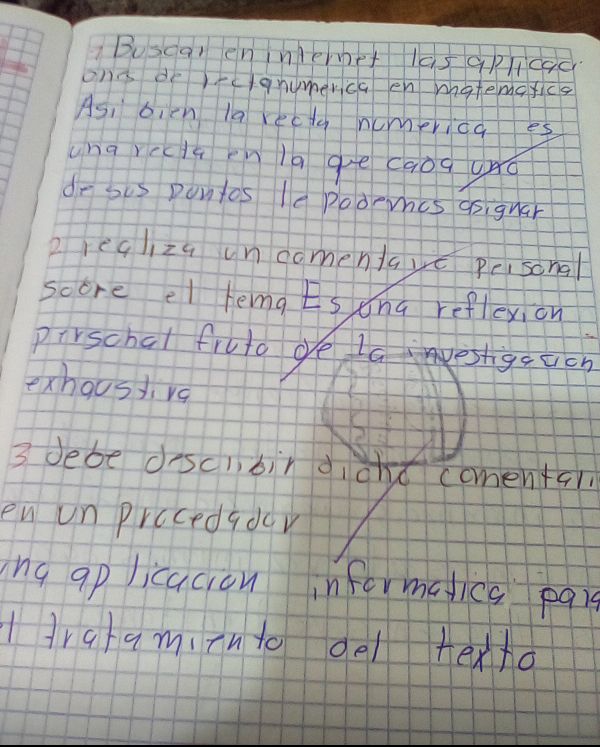 1 Buscar en internet las aplicaci
ons de rectanumerica en matematica
Asi bien, la recta numerica es
una recta en la que cada uno
de sus puntos le podemos asignar
2 realiza un comentario personal
scbre el tema Es una reflexion
pirschal fruto de la investigacion
exhaustiva
3 debe describir dicho comentari
en un procedador
una aplicacion informatica para
el tratamiento del texto